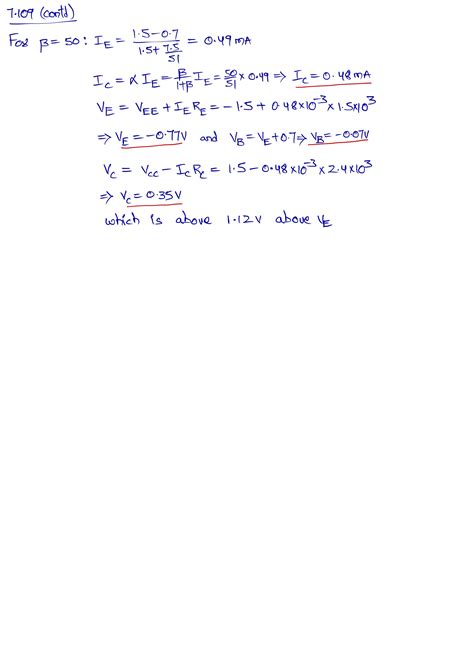 7.109 (contd)
For β = 50 : I_E = (1.5 - 0.7) / (1.5 + 7.5/51) = 0.49 mA
I_C = α I_E = β/(1+β) I_E = 50/51 × 0.49 ⇒ I_C = 0.48 mA
V_E = V_EE + I_E R_E = - 1.5 + 0.48×10^-3 × 1.5×10^3
⇒ V_E = -0.77V and V_B = V_E + 0.7 ⇒ V_B = -0.07V
V_C = V_CC - I_C R_C = 1.5 - 0.48×10^-3 × 2.4×10^3
⇒ V_C = 0.35V
which is above 1.12V above V_E